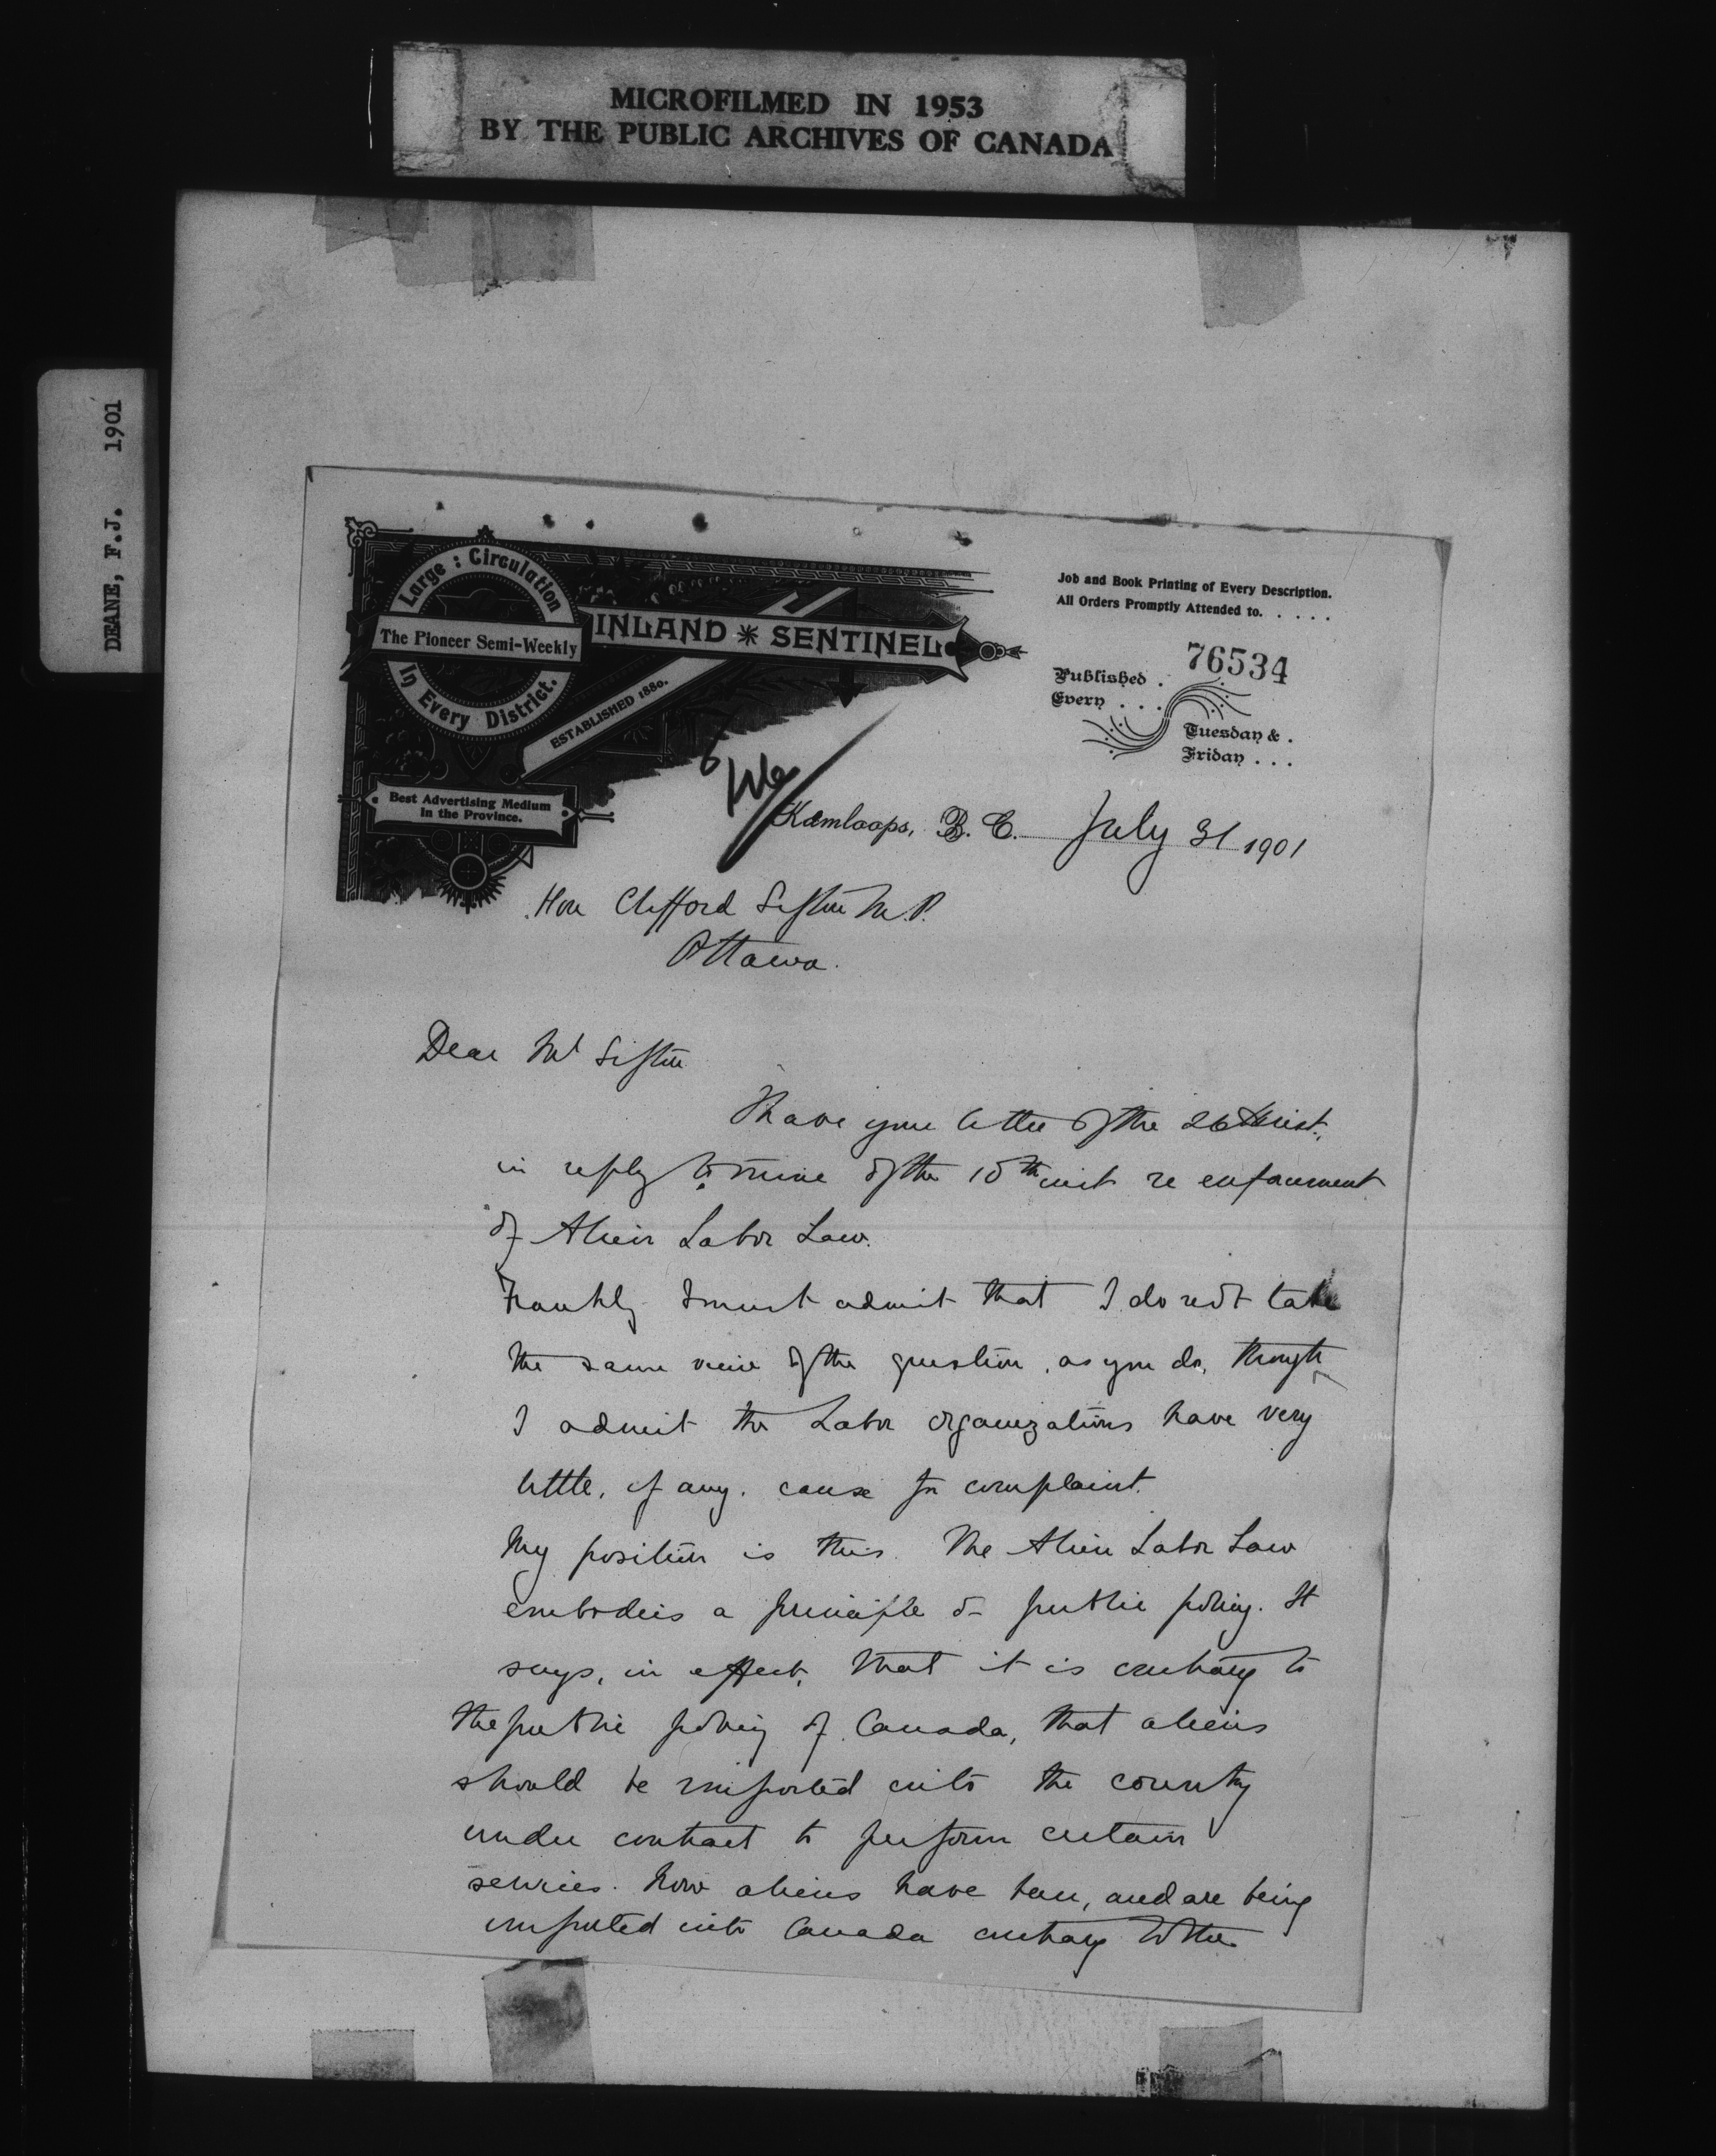 MICROFILMED IN 1953
BY THE PUBLIC ARCHIVES OF CANADA
DEANE, F.J. 1901
Large : Circulation
The Pioneer Semi-Weekly
In Every District.
INLAND SENTINEL
ESTABLISHED 1880.
Best Advertising Medium
in the Province.
Job and Book Printing of Every Description.
All Orders Promptly Attended to. . . . .
76534
Published .
Every . . .
Tuesday & .
Friday . . .
File
Kamloops, B. C. July 31 1901
Hon Clifford Sifton M.P.
Ottawa.
Dear Mr Sifton
I have your letter of the 26th inst.,
in reply to mine of the 10th inst re enforcement
of Alien Labor Law.
Frankly I must admit that I do not take
the same view of the question, as you do, though
I admit the Labor organizations have very
little, if any, cause for complaint.
My position is this. The Alien Labor Law
embodies a principle of public policy. It
says, in effect, that it is contrary to
the public policy of Canada, that aliens
should be imported into the country
under contract to perform certain
services. Now aliens have been, and are being
imported into Canada contrary to the